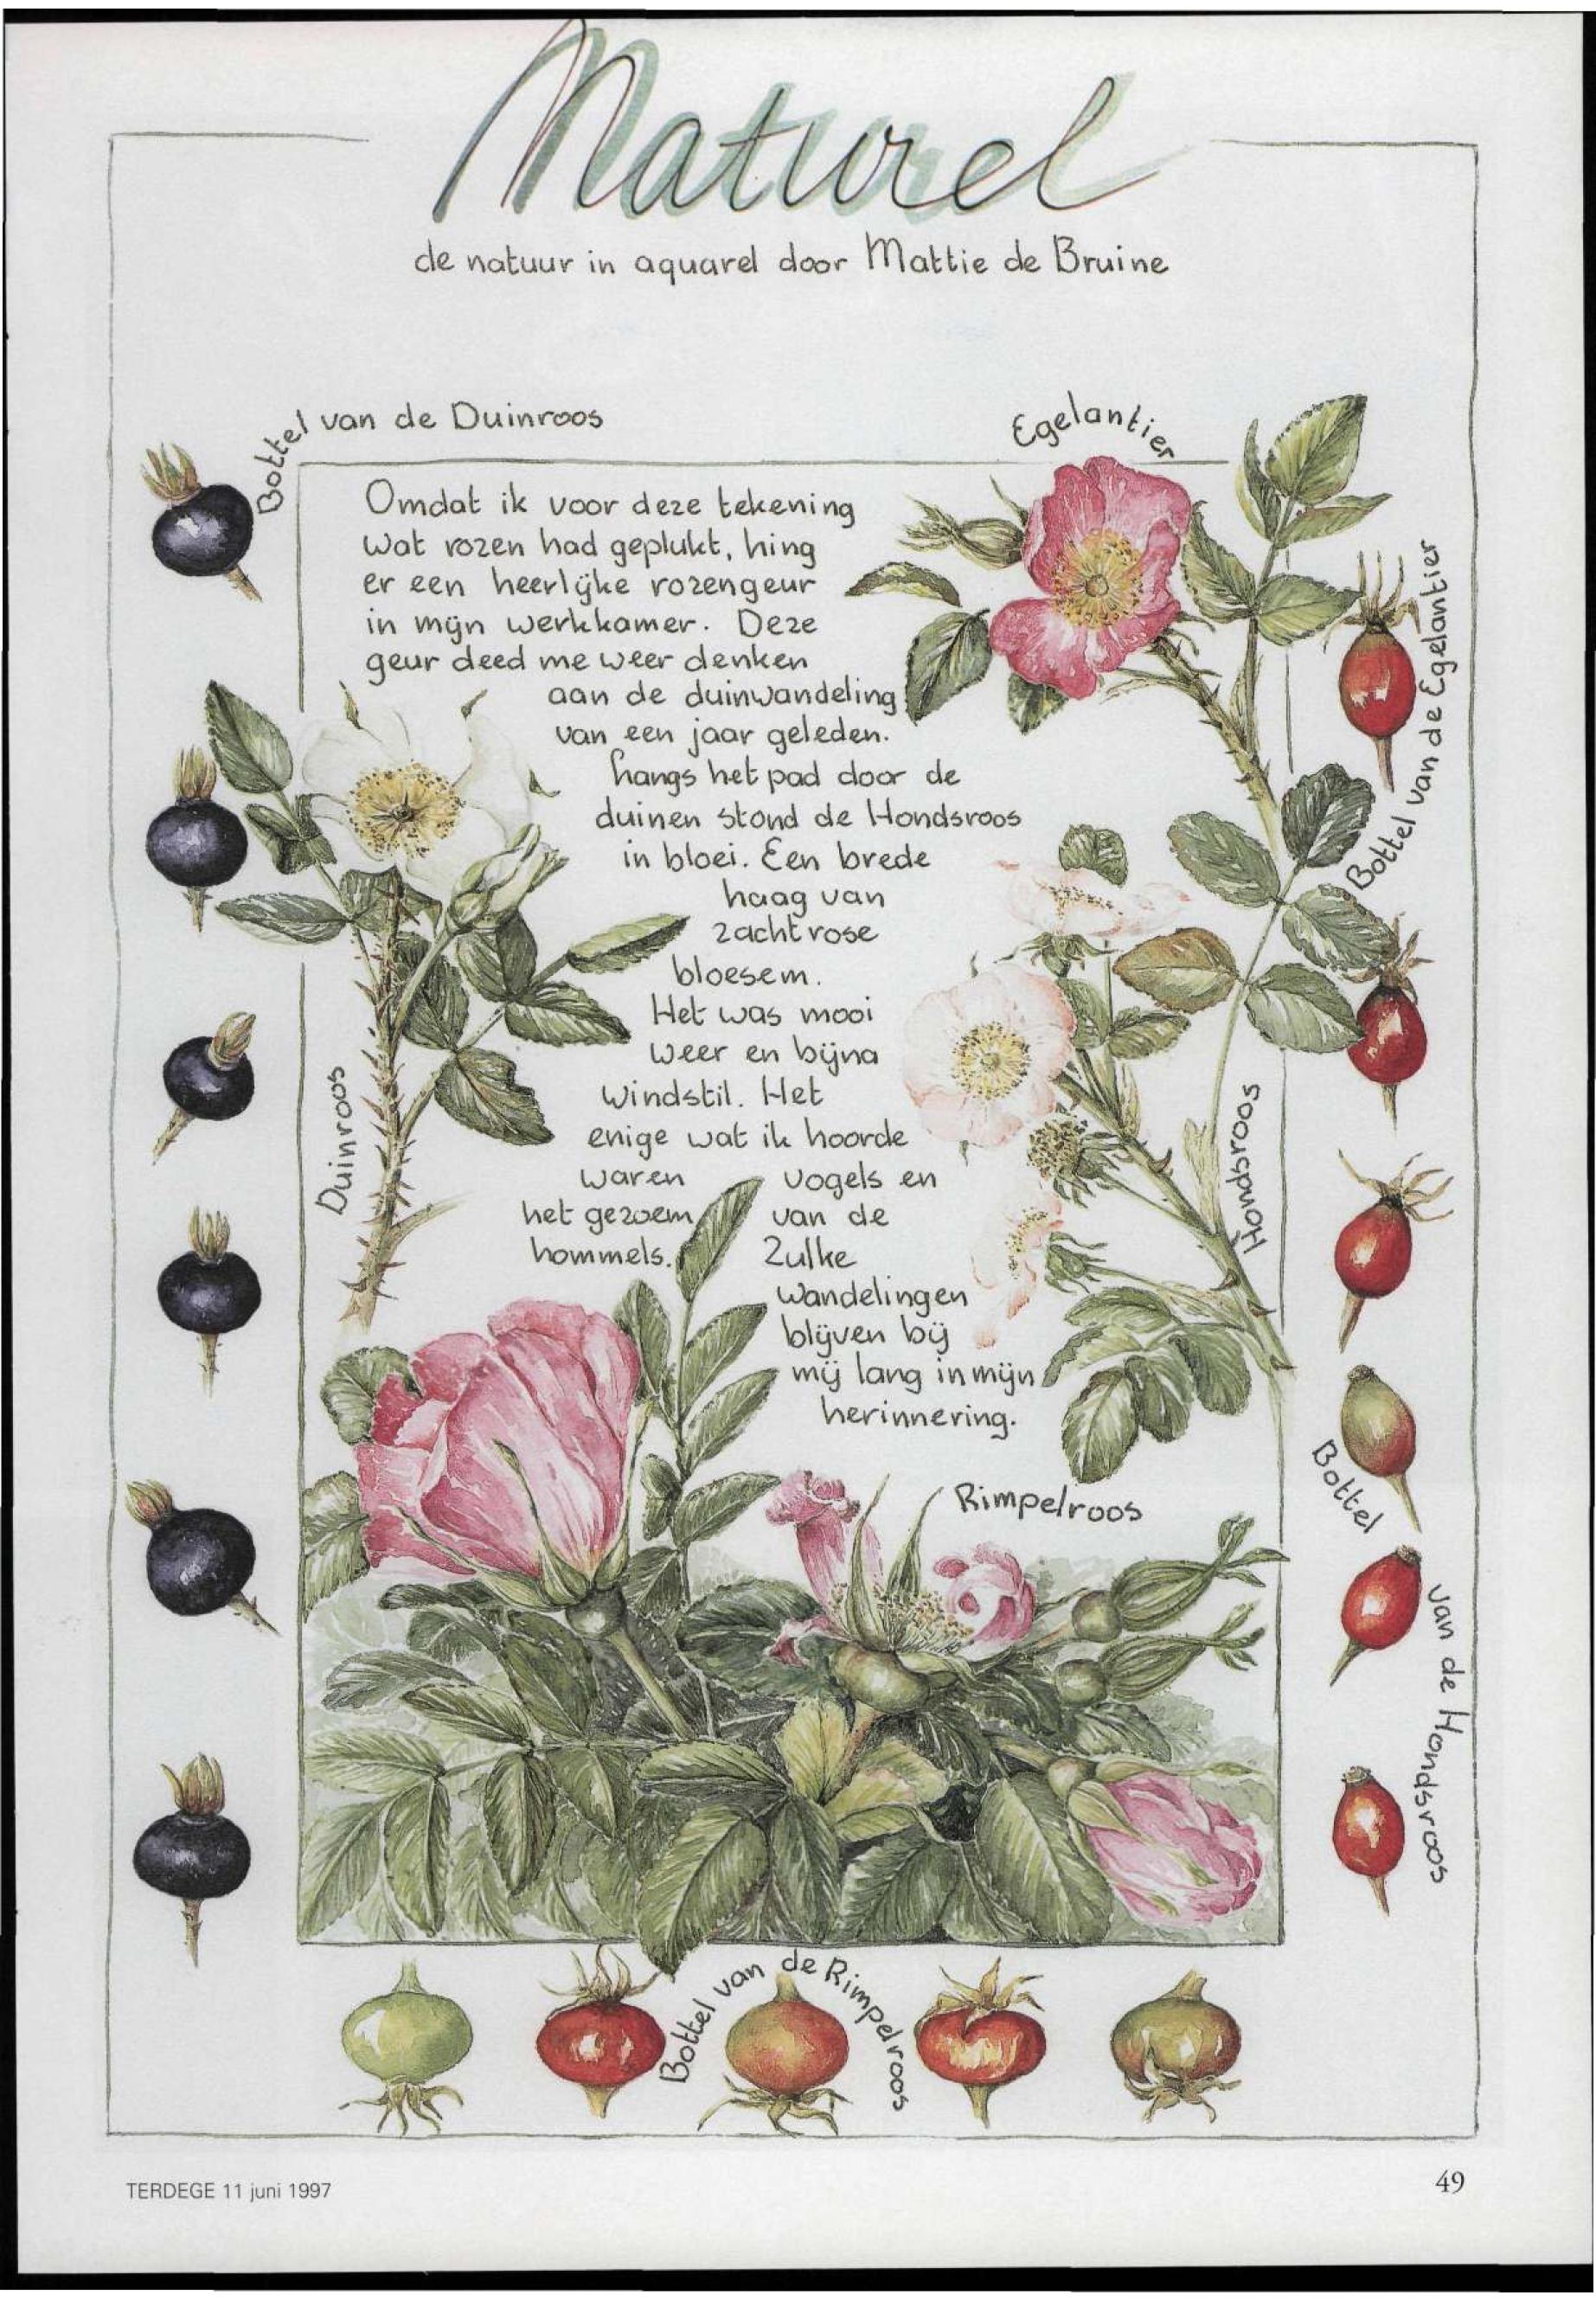 Naturel
de natuur in aquarel door Mattie de Bruine
Bottel van de Duinroos
Egelantier
Omdat ik voor deze tekening
wat rozen had geplukt, hing
er een heerlijke rozengeur
in mijn werkkamer. Deze
geur deed me weer denken
aan de duinwandeling
van een jaar geleden.
Langs het pad door de
duinen stond de Hondsroos
in bloei. Een brede
haag van
zacht rose
bloesem.
Het was mooi
weer en bijna
windstil. Het
enige wat ik hoorde
waren vogels en
het gezoem van de
hommels. Zulke
wandelingen
blijven bij
mij lang in mijn
herinnering.
Bottel van de Egelantier
Duinroos
Hondsroos
Rimpelroos
Bottel van de Hondsroos
Bottel van de Rimpelroos
TERDEGE 11 juni 1997
49